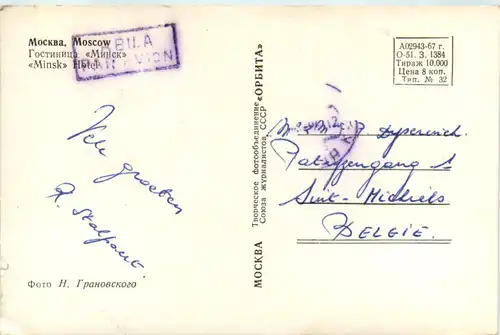 Москва. Moscow
Гостиница «Минск»
«Minsk» Hotel
PAR AVION
Vele groeten
R. Stalpaert
Фото Н. Грановского
МОСКВА
Творческое фотообъединение «ОРБИТА»
Союза журналистов СССР
А02943-67 г.
О-51. З. 1384
Тираж 10.000
Цена 8 коп.
Тип. № 32
1
Sint-Michiels
BELGIE.